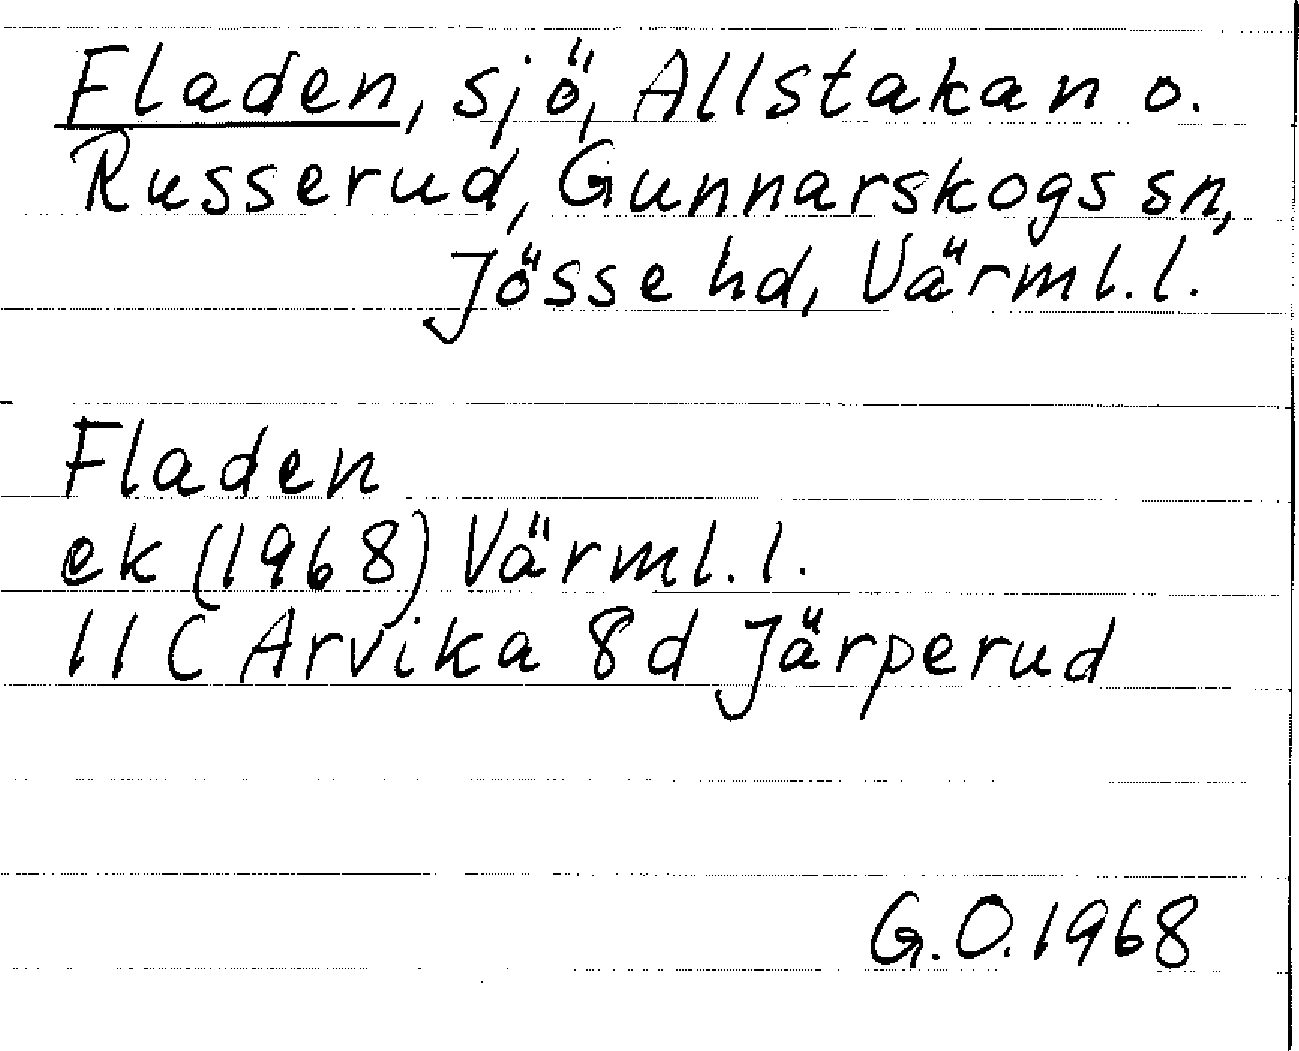 Fladen, sjö, Allstakan o.
Russerud, Gunnarskogs sn,
Jösse hd, Värml. l.
Fladen
ek (1968) Värml. l.
11 C Arvika 8 d Järperud
G.O. 1968